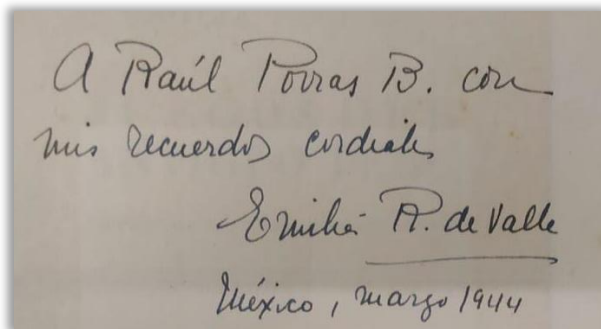 A Raúl Porras B. con
mis recuerdos cordiales
Emilia R. de Valle
México, marzo 1944